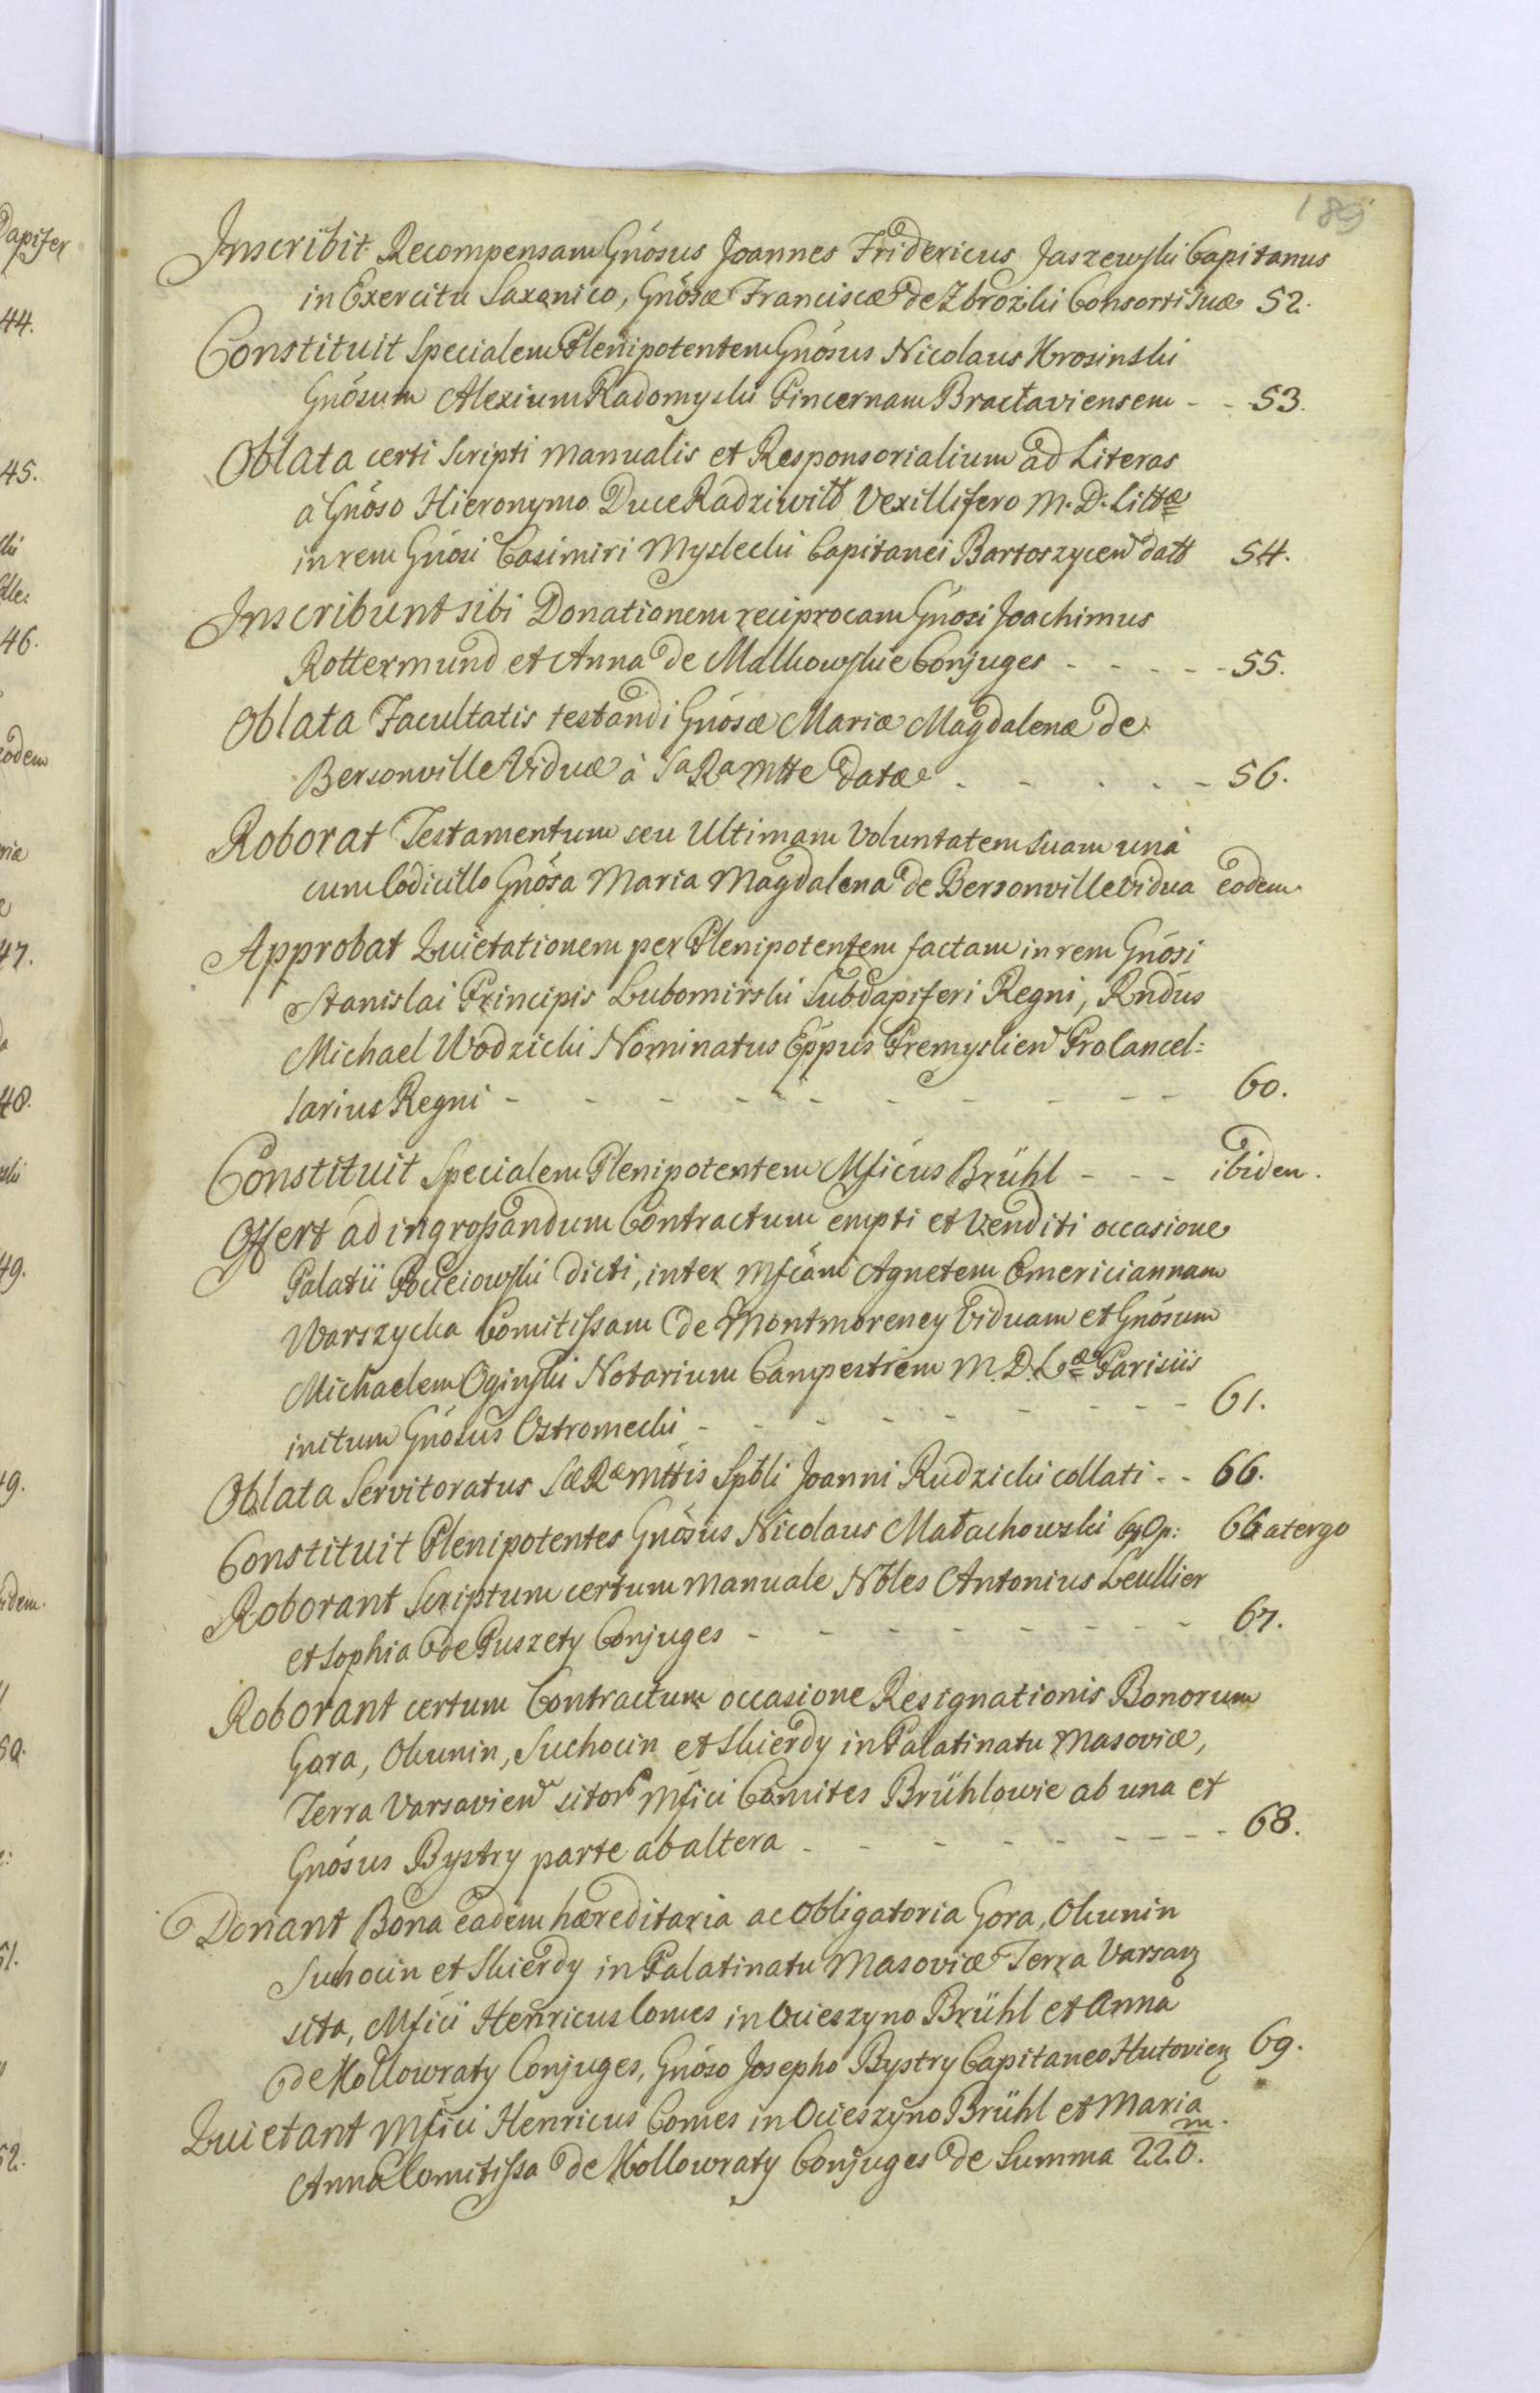 189
Inscribit Recompensam Gnósus Joannes Fridericus Jaszewski Capitanus
in Exercitu Saxonico, Gnósæ Franciscæ de Zbrożki Consorti Suæ 52.
Constituit Specialem Plenipotentem Gnósus Nicolaus Krosinski
Gnósum Alexium Radomyski Pincernam Bractaviensem - - 53.
Oblata certi Scripti manualis et Responsorialium ad Literas
a Gnóso Hieronymo Duce Radziwiłł Vexillifero M. D. Littæ
in rem Gnósi Casimiri Mysłecki Capitanei Bartoszycen datt 54.
Inscribunt sibi Donationem reciprocam Gnósi Joachimus
Rottermund et Anna de Malkowskie Conjuges - - - - - 55.
Oblata Facultatis testandi Gnósæ Mariæ Magdalenæ de
Bersonville Viduæ à Sa Ra Mtte Datæ - - - - - 56.
Roborat Testamentum seu Ultimam Voluntatem Suam unà
cum Codicillo Gnósa Maria Magdalena de Bersonville Vidua eodem.
Approbat Quietationem per Plenipotentem factam in rem Gnósi
Stanislai Principis Lubomirski Subdapiferi Regni, Rndús
Michael Wodzicki Nominatus Eppus Premyslien Procancel=
larius Regni - - - - - - - - - - - 60.
Constituit Specialem Plenipotentem Mficus Brühl - - - ibidem.
Offert ad ingrossandum Contractum empti et Venditi occasione
Palatii Pocieiowski dicti, inter Mficám Agnetem Emericiannam
Warszycka Comitissam de Montmorency Viduam et Gnósum
Michaelem Oginski Notarium Campestrem M. D. Læ Parisiis
initum Gnósus Ostromecki - - - - - - - - - 61.
Oblata Servitoratus Sæ Ræ Mttis Spbli Joanni Rudzicki collati - - 66.
Constituit Plenipotentes Gnósus Nicolaus Małachowski C. Op: 66 atergo
Roborant Scriptum certum manuale Nbles Antonius Leullier
et Sophia de Puszety Conjuges - - - - - - - - 67.
Roborant certum Contractum occasione Resignationis Bonorum
Gora, Okunin, Suchocin et Skierdy in Palatinatu Masoviæ,
Terra Varsavien sitor Mfici Comites Brühlowie ab una et
Gnósus Bystry parte ab altera - - - - - - - - - 68.
Donant Bona eadem hæreditaria ac obligatoria Gora, Okunin
Suchocin et Skierdy in Palatinatu Masoviæ Terra Varsav
sita, Mficii Henricus Comes in Ocieszyno Brühl et Anna
de Kollowraty Conjuges, Gnóso Josepho Bystry Capitaneo Hutovien 69.
Quietant Mfici Henricus Comes in Ocieszyno Brühl et Maria
Anna Comitissa de Kollowraty Conjuges de Summa 220. m.
Dapifer
44.
45.
46.
eodem
47.
48.
49.
49.
ibidem.
50.
51.
52.